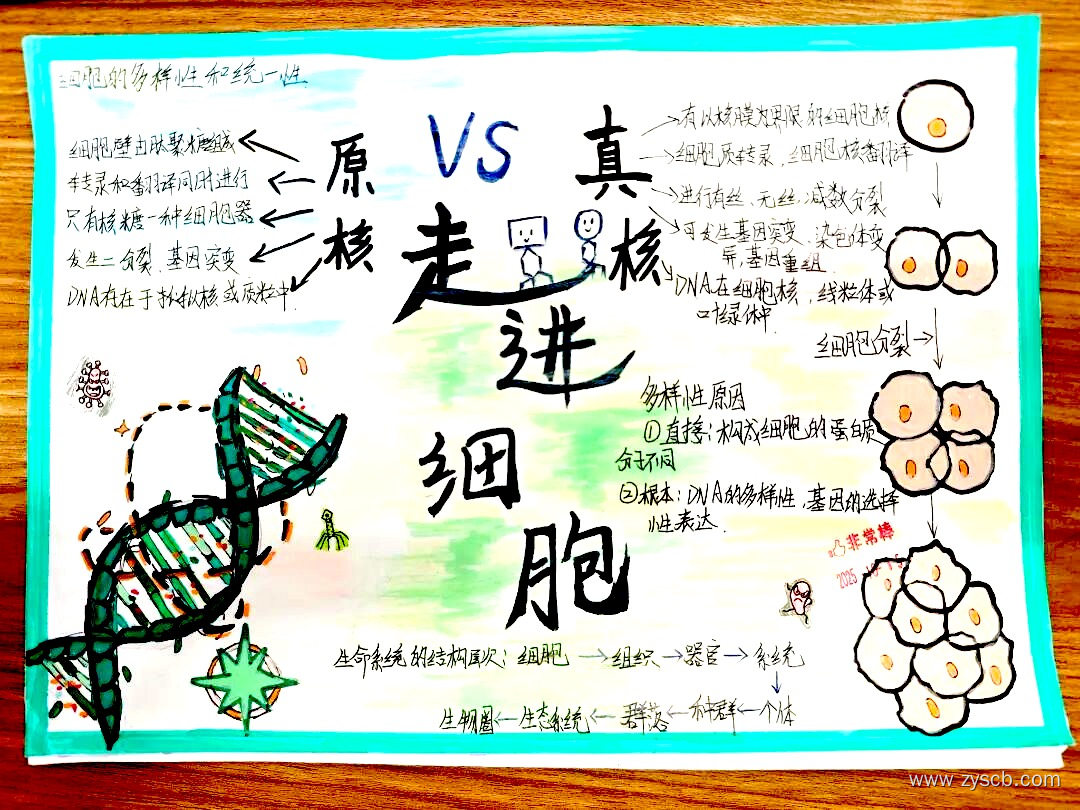 细胞的多样性和统一性
细胞壁由肽聚糖组成
转录和翻译同时进行
只有核糖一种细胞器
发生二分裂、基因突变
DNA存在于拟核或质粒中
原核
VS
真核
有以核膜为界限的细胞核
细胞质转录、细胞核翻译
进行有丝、无丝、减数分裂
可发生基因突变、染色体变
异,基因重组
DNA在细胞核,线粒体或
叶绿体中
走
进
细
胞
细胞分裂
多样性原因
①直接:构成细胞的蛋白质
分子不同
②根本:DNA的多样性,基因的选择
性表达.
非常棒
生命系统的结构层次:细胞→组织→器官→系统
生物圈←生态系统←群落←种群←个体
www.zyscb.com